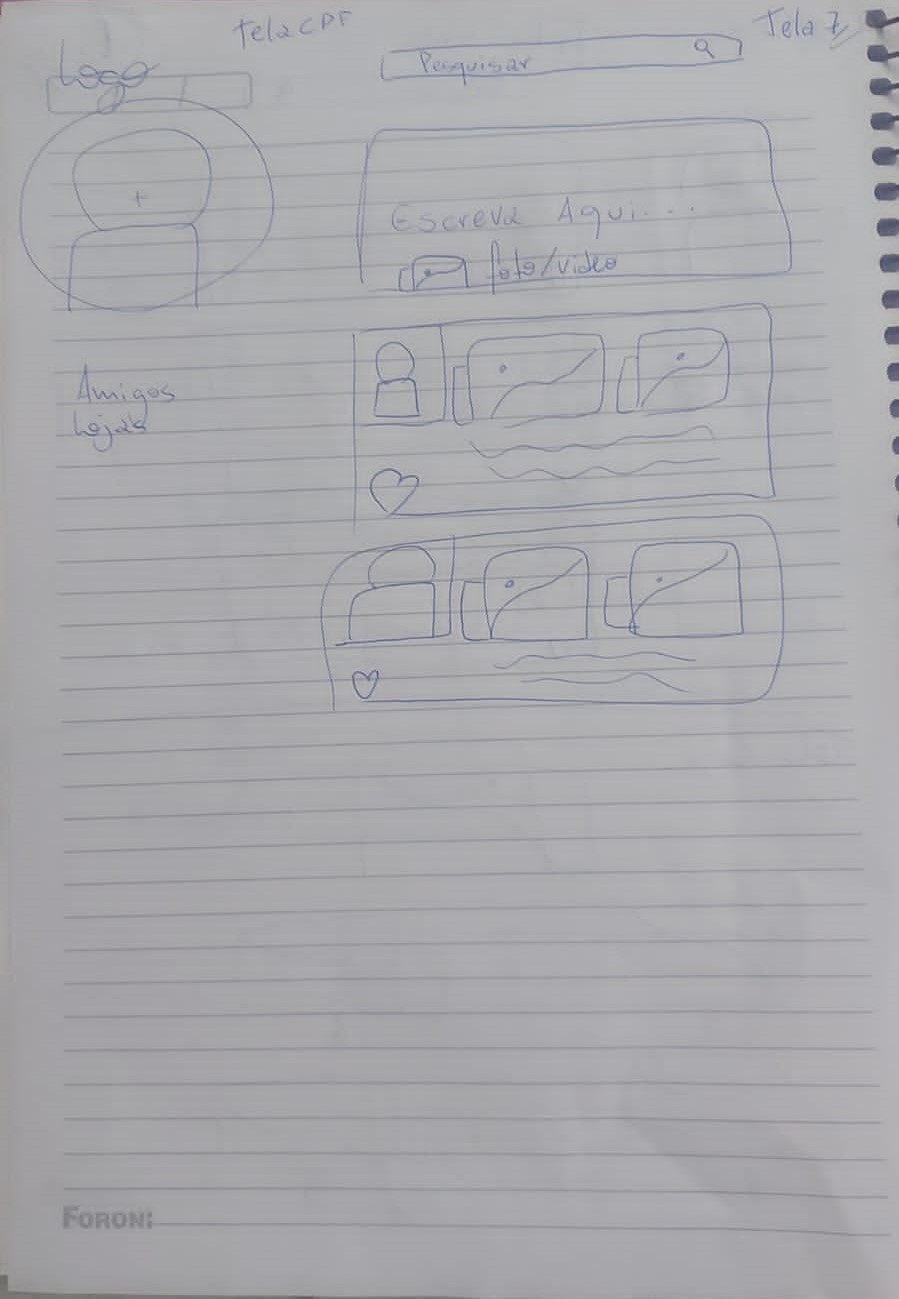 Tela CPF
Tela 7
Logo
Pesquisar
Escreva Aqui...
foto/video
Amigos
Lojas
FORONI